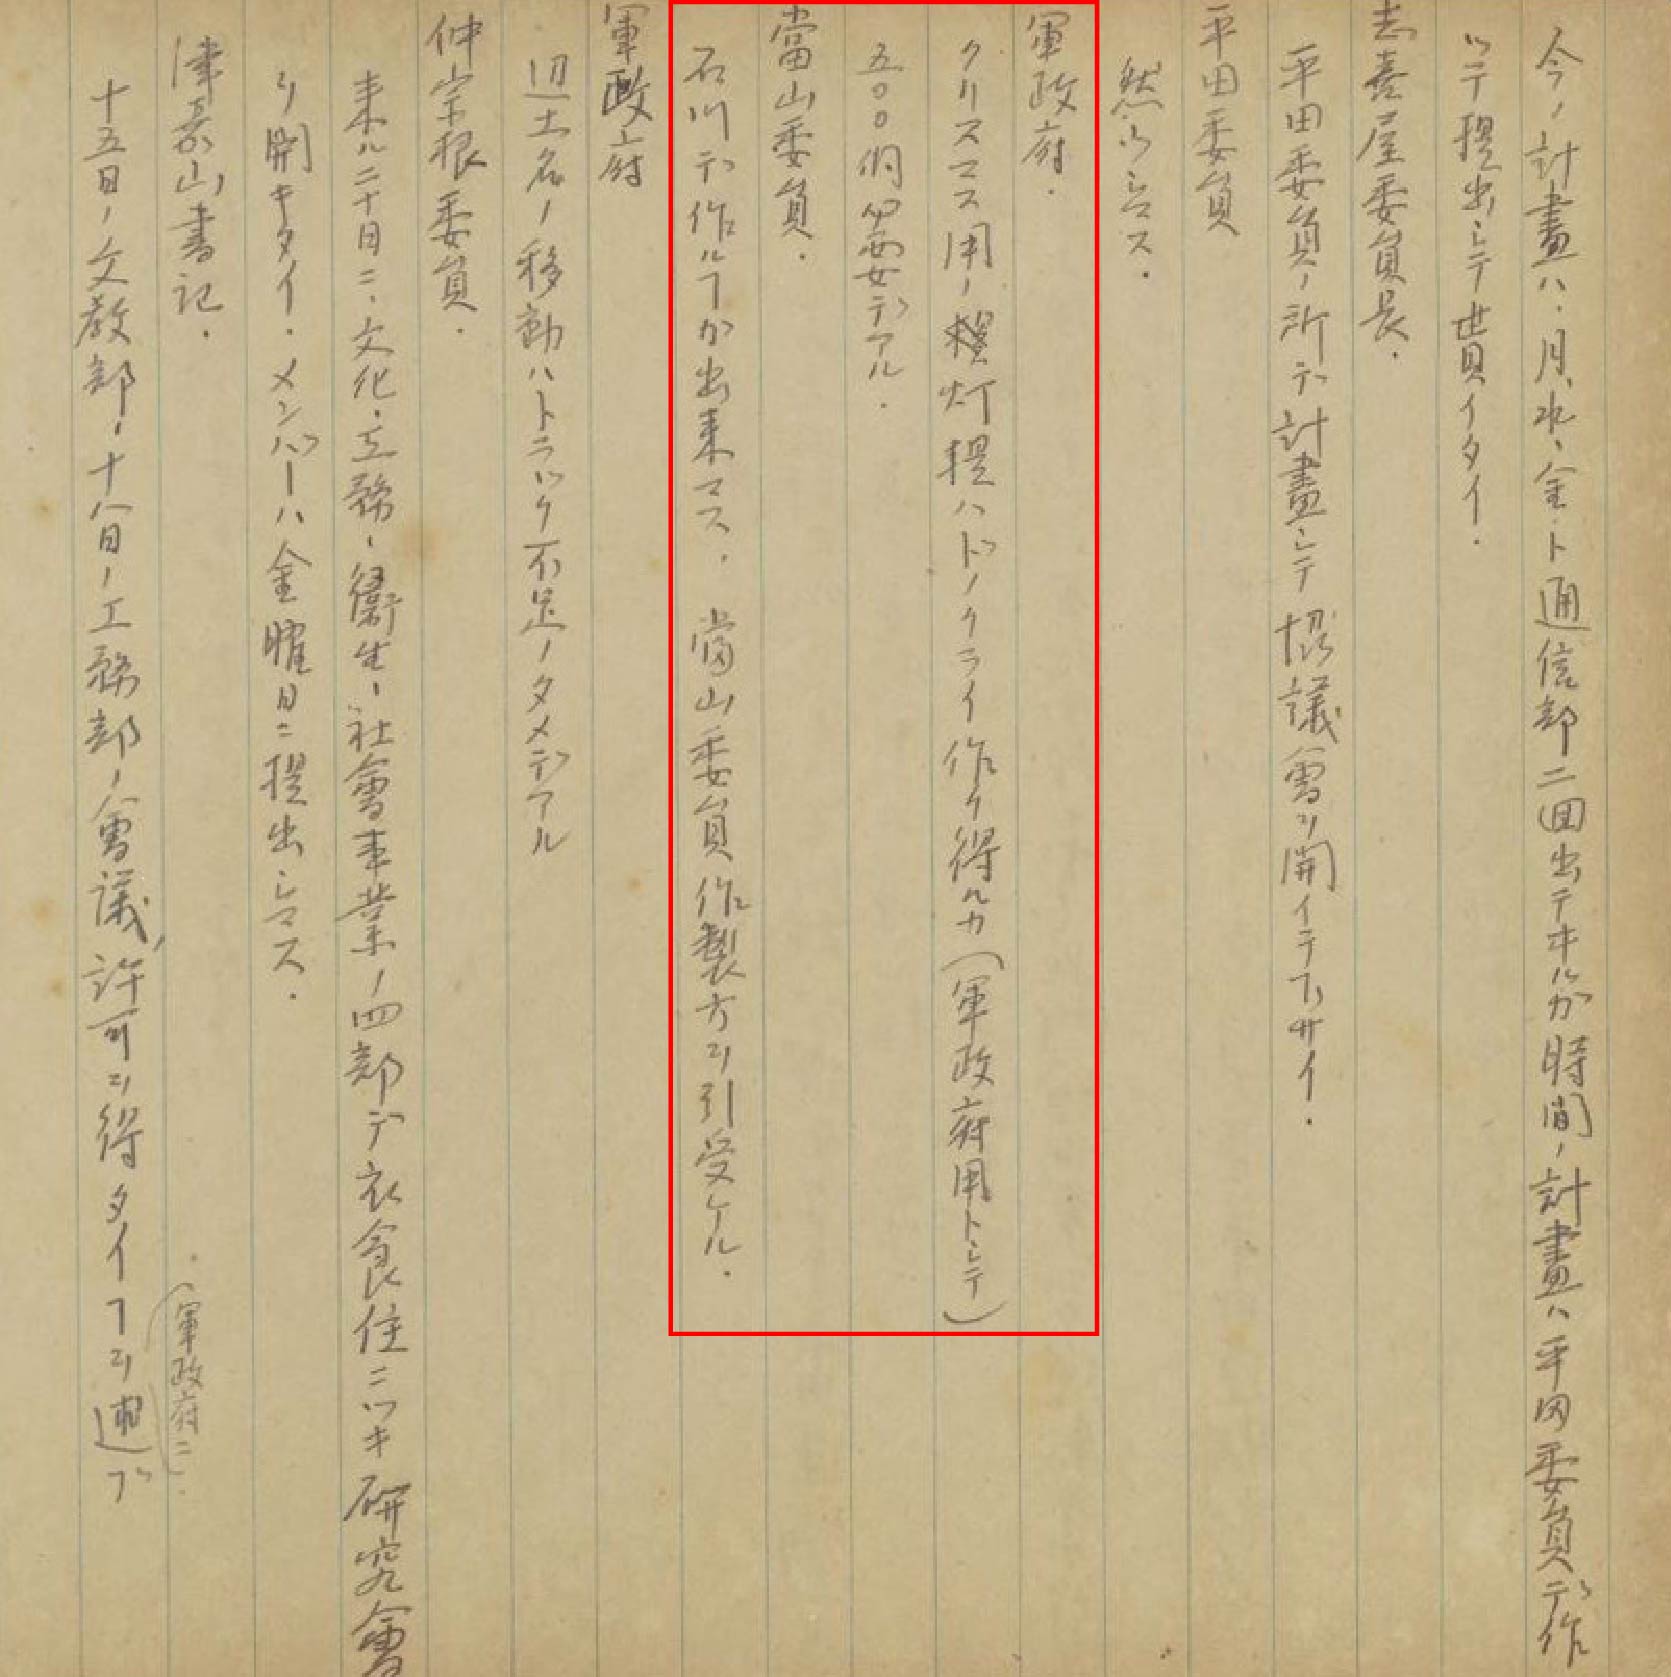 今ノ計畫ハ、月、水、金ト通信部二回出テヰルガ時間ノ計畫ハ平田委員デ作
ツテ提出シテ貰イタイ.
志喜屋委員長.
平田委員ノ所デ計畫シテ協議會ヲ開イテ下サイ.
平田委員
然ウシマス.
軍政府.
クリスマス用ノ模灯提ハドノクライ作リ得ルカ(軍政府用トシテ)
五〇〇個必要デアル.
當山委員.
石川デ作ルヿガ出来マス. 當山委員作製方ヲ引受ケル.
軍政府
辺土名ノ移動ハトラック不足ノタメデアル
仲宗根委員.
来ル二十日ニ、文化、工務、衛生、社會事業ノ四部デ衣食住ニツキ研究會
ヲ開キタイ. メンバーハ金曜日ニ提出シマス.
津嘉山書記.
十五日ノ文教部、十八日ノ工務部ノ會議、許可ヲ得タイヿヲ(軍政府ニ)